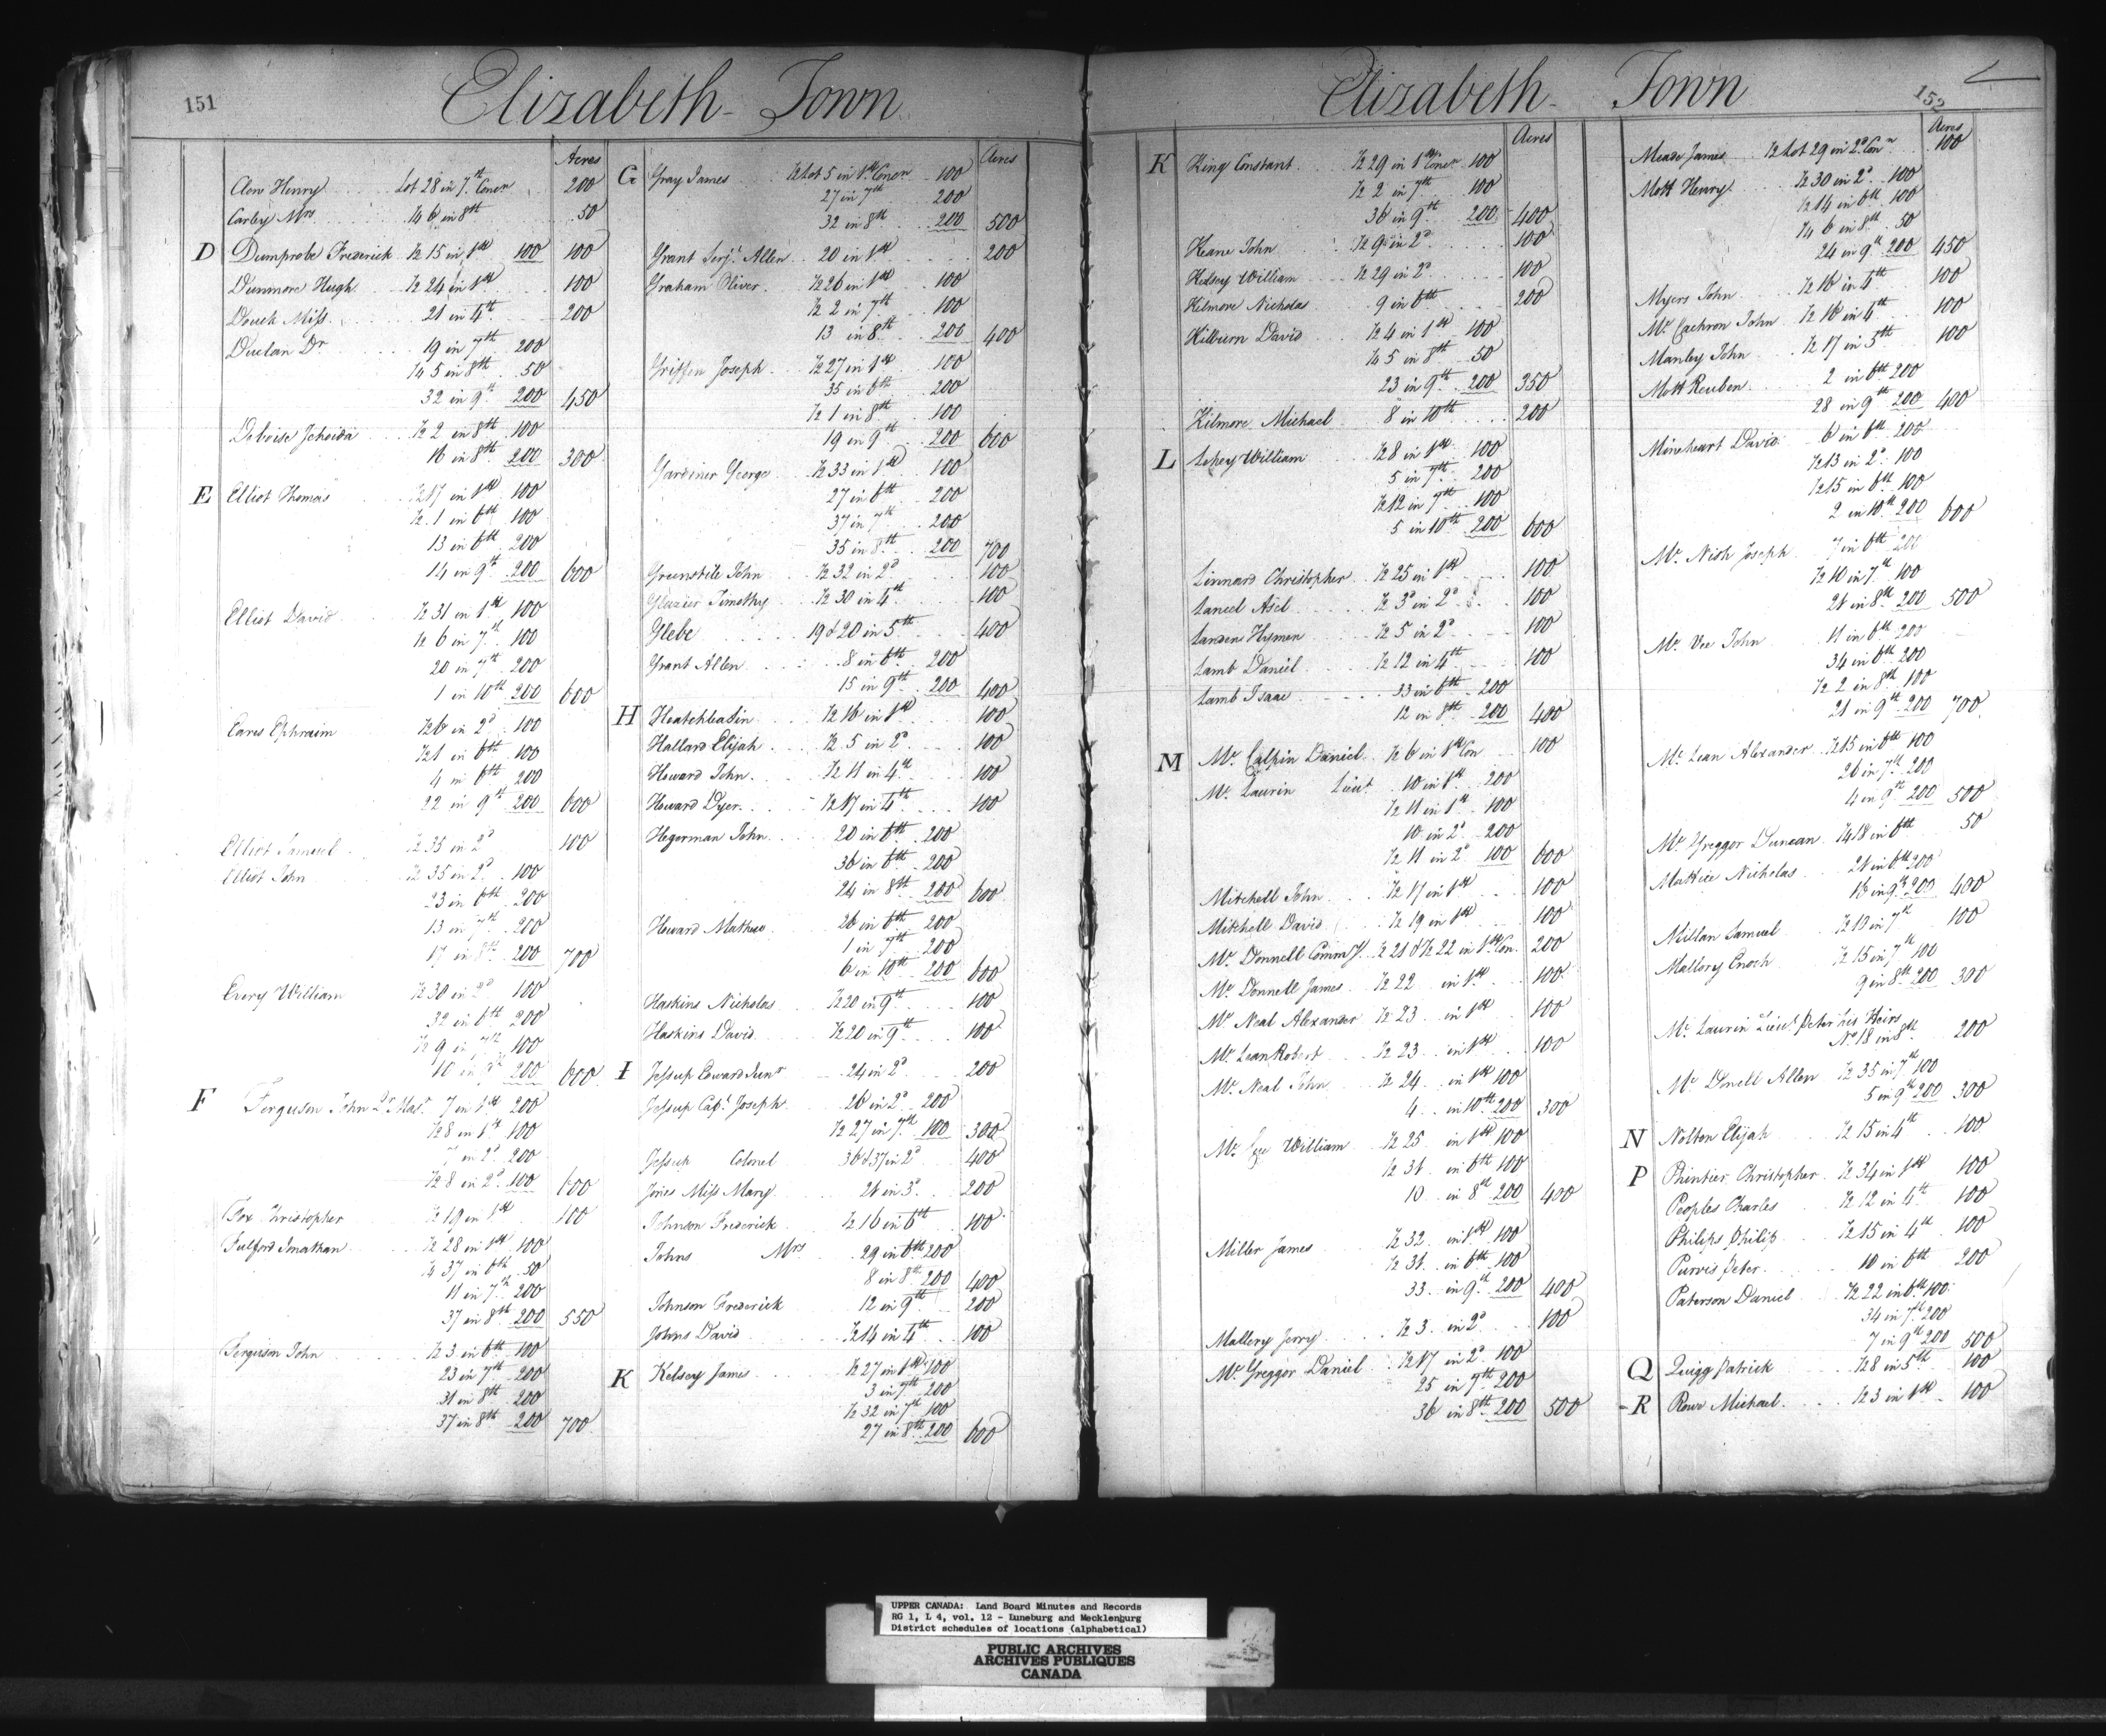 151
Elizabeth-Town
Acres
Clow Henry lot 28 in 7th Concn 200
Carley Mrs ¼ 6 in 8th 50
D Dumprobe Frederick ½ 15 in 1st 100 100
Dunmore Hugh ½ 24 in 1st 100
Douch Miss 21 in 4th 200
Duclan Dr 19 in 7th 200
¼ 5 in 8th 50
32 in 9th 200 450
Deboise Jehoida ½ 2 in 8th 100
16 in 8th 200 300
E Elliot Thomas ½ 17 in 1st 100
½ 1 in 6th 100
13 in 6th 200
14 in 9th 200 600
Elliot David ½ 31 in 1st 100
½ 6 in 7th 100
20 in 7th 200
1 in 10th 200 600
Eares Ephraim ½ 6 in 2d 100
½ 1 in 6th 100
4 in 6th 200
22 in 9th 200 600
Elliot Samuel ½ 35 in 2d 100
Elliot John ½ 35 in 2d 100
23 in 6th 200
13 in 7th 200
17 in 8th 200 700
Every William ½ 30 in 2d 100
32 in 6th 200
½ 9 in 7th 100
10 in 9th 200 600
F Ferguson John Qr Mastr 7 in 1st 200
½ 8 in 1st 100
7 in 2d 200
½ 8 in 2d 100 600
Fox Christopher ½ 19 in 1st 100
Fulford Jonathan ½ 28 in 1st 100
¼ 37 in 6th 50
11 in 7th 200
37 in 8th 200 550
Ferguson John ½ 3 in 6th 100
23 in 7th 200
31 in 8th 200
37 in 8th 200 700
Acres
G Gray James ½ Lot 5 in 1st Concn 100
27 in 7th 200
32 in 8th 200 500
Grant Serjt Allen 20 in 1st 200
Graham Oliver ½ 26 in 1st 100
½ 2 in 7th 100
13 in 8th 200 400
Griffen Joseph ½ 27 in 1st 100
35 in 6th 200
½ 1 in 8th 100
19 in 9th 200 600
Gardiner George ½ 33 in 1st 100
27 in 6th 200
37 in 7th 200
35 in 8th 200 700
Greenstile John ½ 32 in 2d 100
Glazier Timothy ½ 30 in 4th 100
Glebe 19 & 20 in 5th 400
Grant Allen 8 in 6th 200
15 in 9th 200 400
H Heatchbatin ½ 16 in 1st 100
Hallard Elijah ½ 5 in 2d 100
Howard John ½ 11 in 4th 100
Howard Dyer ½ 17 in 4th 100
Hegerman John 20 in 6th 200
36 in 6th 200
24 in 8th 200 600
Howard Mathew 26 in 6th 200
1 in 7th 200
6 in 10th 200 600
Haskins Nicholas ½ 20 in 9th 100
Haskins David ½ 20 in 9th 100
I Jessup Edward Junr 24 in 2d 200
Jessup Capt Joseph 26 in 2d 200
½ 27 in 7th 100 300
Jessup Colonel 36 & 37 in 2d 400
Jones Miss Mary 21 in 3d 200
Johnson Frederick ½ 16 in 6th 100
Johns Mrs 29 in 6th 200
8 in 8th 200 400
Johnson Frederick 12 in 9th 200
Johns David ½ 14 in 4th 100
K Kelsey James ½ 27 in 1st 100
3 in 7th 200
½ 32 in 7th 100
27 in 8th 200 600
Elizabeth-Town
152
Acres
K King Constant ½ 29 in 1st Concn 100
½ 2 in 7th 100
36 in 9th 200 400
Keane John ½ 9 in 2d 100
Kelsey William ½ 29 in 2d 100
Kilmore Nicholas 9 in 6th 200
Kilburn David ½ 4 in 1st 100
¼ 5 in 8th 50
23 in 9th 200 350
Kilmore Michael 8 in 10th 200
L Lehey William ½ 8 in 1st 100
5 in 7th 200
½ 12 in 7th 100
5 in 10th 200 600
Linnard Christopher ½ 25 in 1st 100
Laneel Asel ½ 3d in 2d 100
Landen Hymen ½ 5 in 2d 100
Lamb Daniel ½ 12 in 4th 100
Lamb Isaac 33 in 6th 200
12 in 8th 200 400
M Mc Calpin Daniel ½ 6 in 1st Con 100
Mc Laurin Lieut 10 in 1st 200
½ 11 in 1st 100
10 in 2d 200
½ 11 in 2d 100 600
Mitchell John ½ 17 in 1st 100
Mitchell David ½ 19 in 1st 100
Mc Donnell Commy ½ 21 & ½ 22 in 1st Con 200
Mc Donnell James ½ 22 in 1st 100
Mc Neal Alexander ½ 23 in 1st 100
Mc Lean Robert ½ 23 in 1st 100
Mc Neal John ½ 24 in 1st 100
4 in 10th 200 300
Mc Gee William ½ 25 in 1st 100
½ 31 in 6th 100
10 in 8th 200 400
Miller James ½ 32 in 1st 100
½ 31 in 6th 100
33 in 9th 200 400
Mallery Jerry ½ 3 in 2d 100
Mc Greggor Daniel ½ 17 in 2d 100
25 in 7th 200
36 in 8th 200 500
Acres
Meade James ½ Lot 29 in 2d Conn 100
Mott Henry ½ 30 in 2d 100
½ 14 in 6th 100
¼ 6 in 8th 50
24 in 9th 200 450
Myers John ½ 16 in 4th 100
Mc Cachron John ½ 18 in 4th 100
Manley John ½ 17 in 5th 100
Mott Reuben 2 in 6th 200
28 in 9th 200 400
Mineheart David 6 in 6th 200
½ 13 in 2d 100
½ 15 in 6th 100
2 in 10th 200 600
Mc Nish Joseph 7 in 6th 200
½ 10 in 7th 100
21 in 8th 200 500
Mc Vee John 11 in 6th 200
34 in 6th 200
½ 2 in 8th 100
21 in 9th 200 700
Mc Lean Alexander ½ 15 in 6th 100
26 in 7th 200
4 in 9th 200 500
Mc Greggor Duncan ¼ 18 in 6th 50
Mattice Nicholas 21 in 6th 200
16 in 9th 200 400
Millan Samuel ½ 10 in 7th 100
Mallory Enoch ½ 15 in 7th 100
9 in 8th 200 300
Mc Laurin Lieut Peter his Heirs
No 18 in 8th 200
Mc Donell Allen ½ 35 in 7th 100
5 in 9th 200 300
N Nolton Elijah ½ 15 in 4th 100
P Phintier Christopher ½ 34 in 1st 100
Peoples Charles ½ 12 in 4th 100
Philips Philip ½ 15 in 4th 100
Purvis Peter 10 in 6th 200
Paterson Daniel ½ 22 in 6th 100
34 in 7th 200
7 in 9th 200 500
Q Quigg Patrick ½ 8 in 5th 100
R Rowe Michael ½ 3 in 1st 100
UPPER CANADA: Land Board Minutes and Records
RG 1, L 4, vol. 12 - Luneburg and Mecklenburg
District schedules of locations (alphabetical)
PUBLIC ARCHIVES
ARCHIVES PUBLIQUES
CANADA